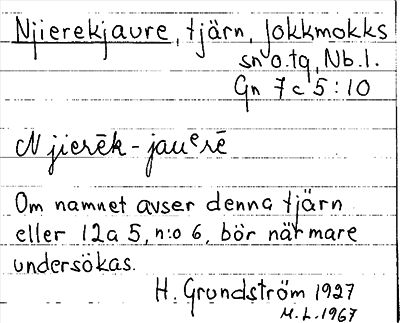 Njierekjaure, tjärn, Jokkmokks
sn o. tg, Nb. l.
Gn 7 c 5 : 10
Njierēk - jauᵉrē
Om namnet avser denna tjärn
eller 12a 5, n:o 6, bör närmare
undersökas.
H. Grundström 1927
M. L. 1967